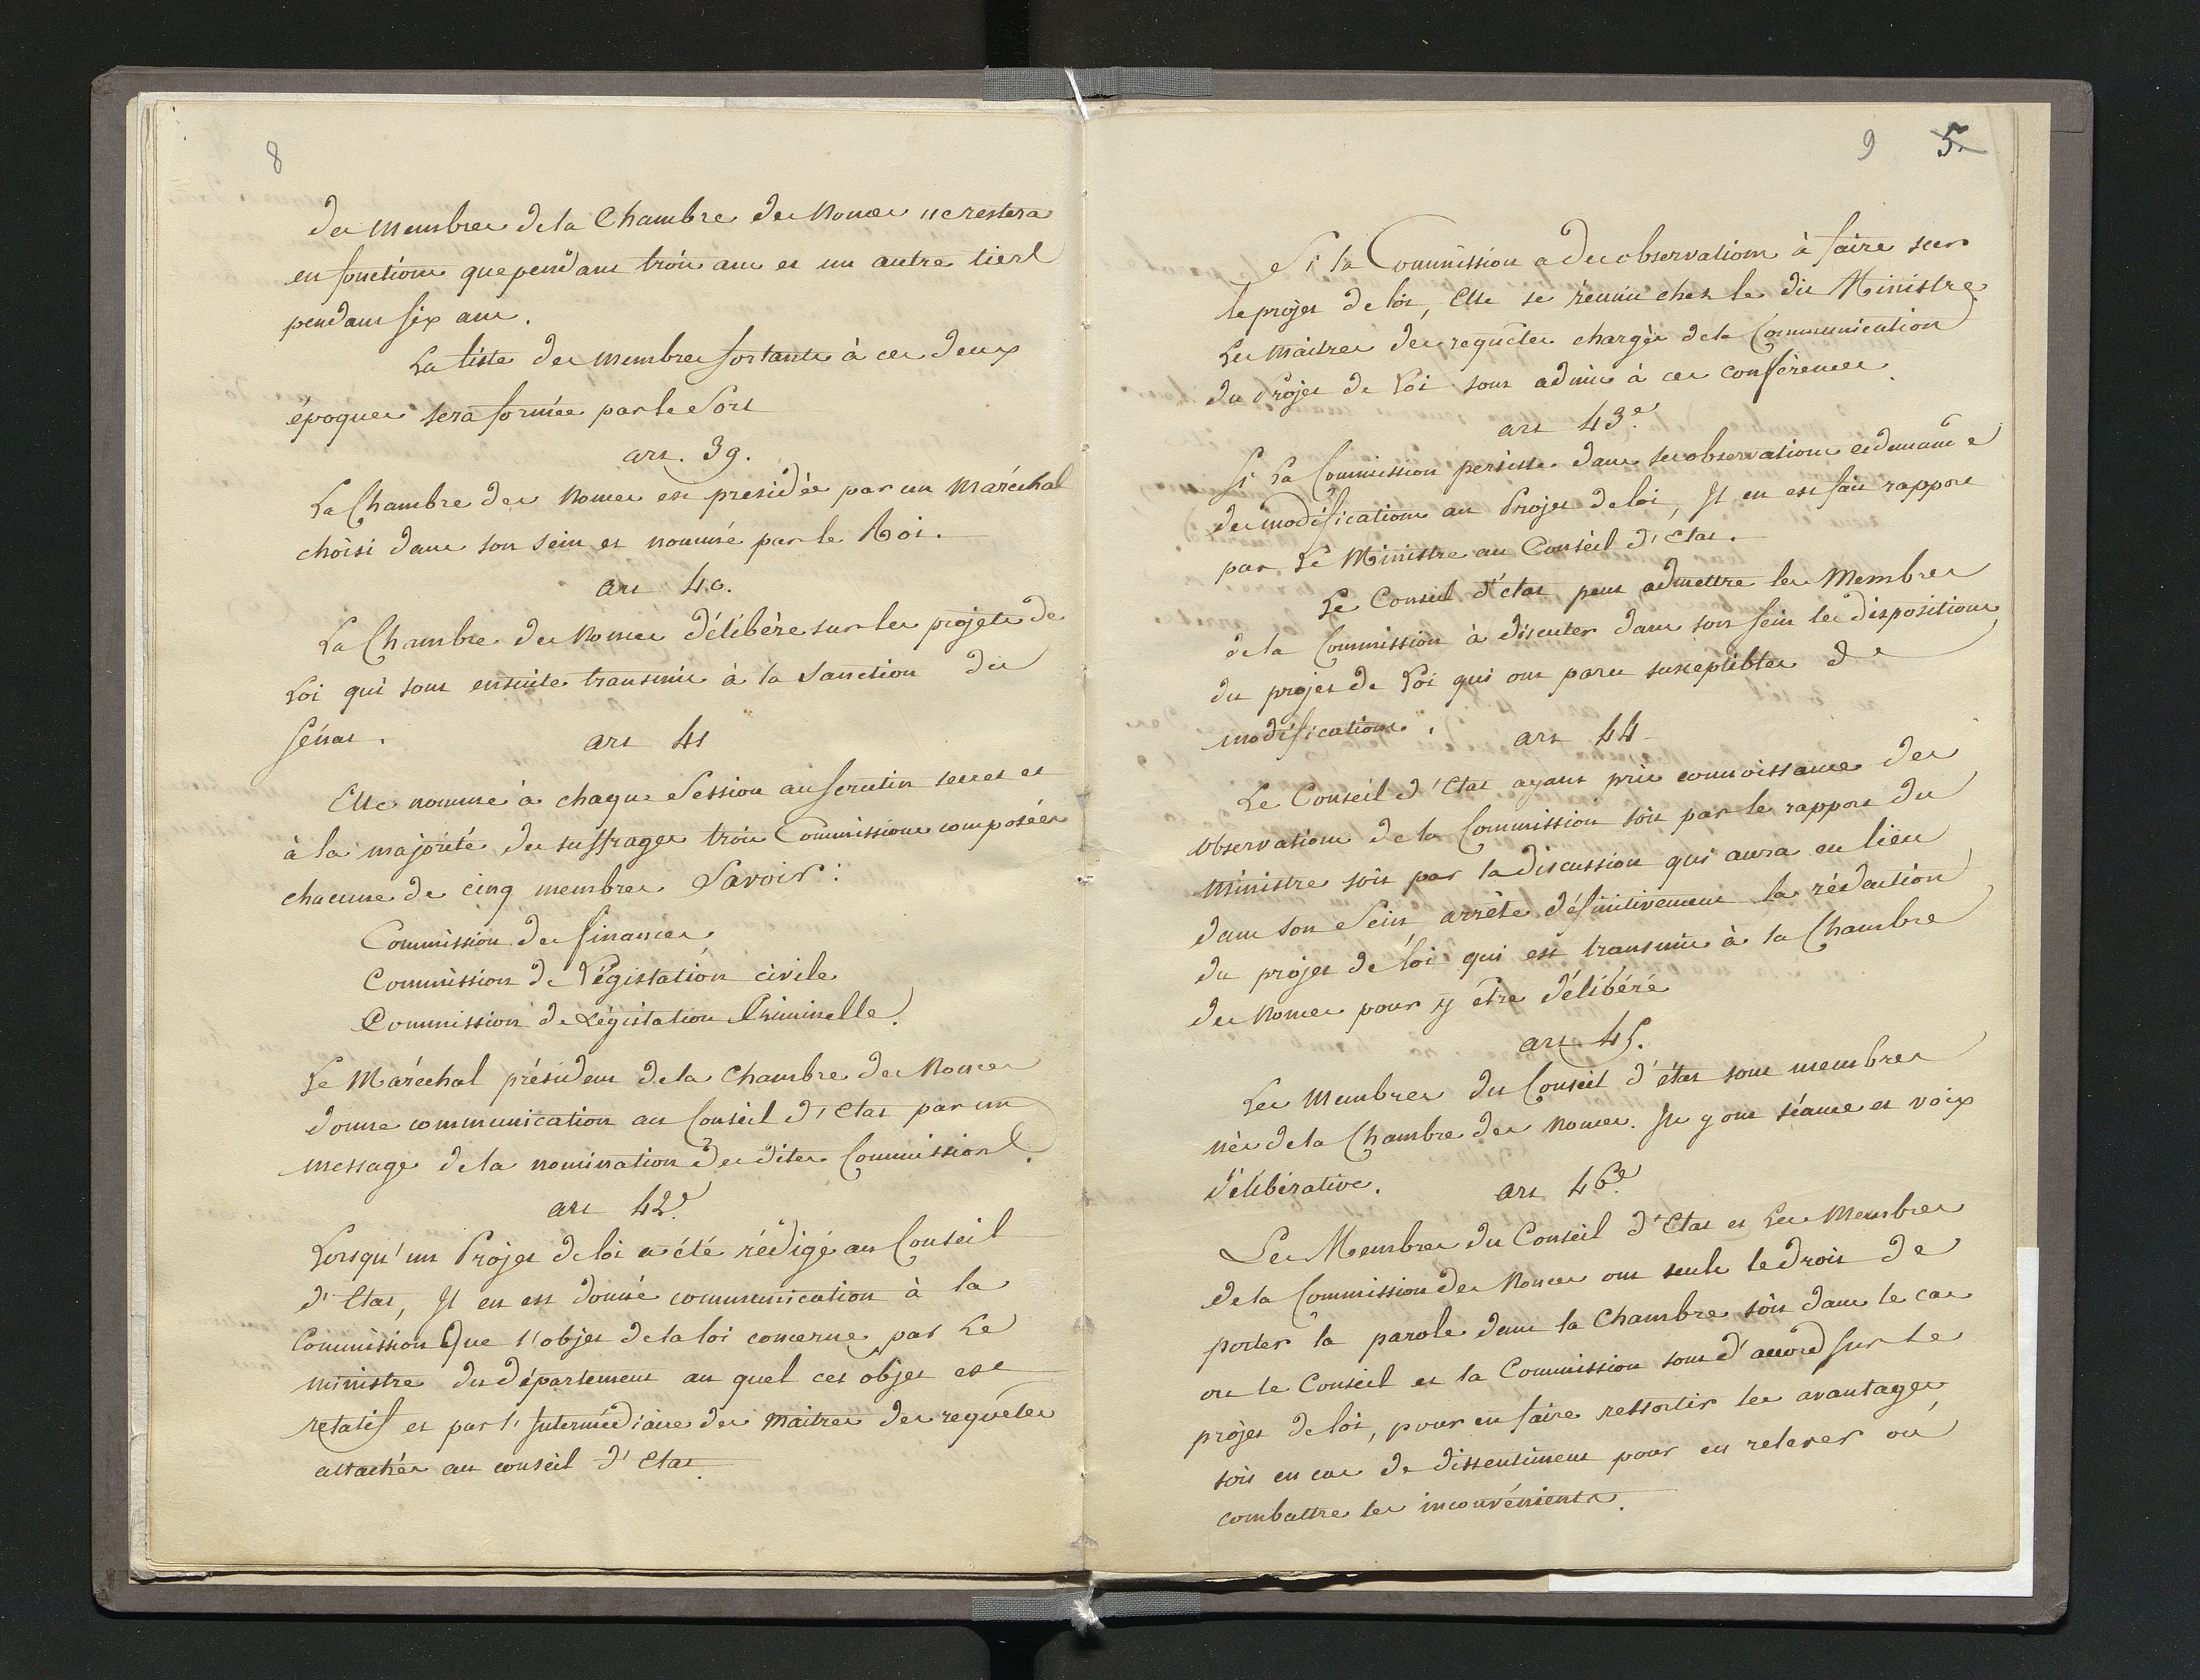 8
des membres de la Chambre des Nonces ne restera
en fonctions que pendant trois ans et un autre tiers
pendant six ans.
La liste des membres sortants à ces deux
époques sera formée par le Sort
art. 39.
La Chambre des Nonces est presidée par un Maréchal
choisi dans son sein et nommé par le Roi.
art 40.
La Chambre des Nonces délibère sur les projets de
Loi qui sont ensuite transmis à la Sanction du
Sénat.
art 41
Elle nomme à chaque Session au scrutin secret et
à la majorité des suffrages trois Commissions composées
chacune de cinq membres Savoir :
Commission des finances
Commission de Législation civile
Commission de Législation Criminelle.
Le Maréchal président de la Chambre des Nonces
donne communication au Conseil d'Etat par un
message de la nomination des dites Commissions.
art 42e
Lorsqu'un Projet de loi a été rédigé au Conseil
d'Etat, Il en est donné communication à la
Commission Que l'objet de la loi concerne par Le
ministre du département au quel cet objet est
relatif et par l'Intermédiaire des Maitres des requêtes
attachés au conseil d'Etat
9 5
Si la Commission a des observations à faire sur
le projet de loi, Elle se réunit chez le dit Ministre
Les Maitres des requêtes chargés de la Communication
du Projet de Loi sont admis à ces conférences.
art 43e
Si La Commission persiste dans ses observations et demande
des modifications au Projet de loi, Il en est fait rapport
par Le Ministre au Conseil d'Etat.
Le Conseil d'état peut admettre les Membres
de la Commission à discuter dans son sein les dispositions
du projet de Loi qui ont paru susceptibles de
modifications.
art 44
Le Conseil d'Etat ayant pris connoissance des
observations de la Commission soit par le rapport du
Ministre soit par la discussion qui aura eu lieu
dans son Sein, arrête définitivement la rédaction
du projet de loi qui est transmis à la Chambre
des Nonces pour y être délibéré
art 45.
Les Membres du Conseil d'état sont membres
nés de la Chambre des Nonces. Ils y ont séance et voix
délibérative.
art 46e
Les Membres du Conseil d'Etat et Les Membres
de la Commission des Nonces ont seuls le droit de
porter la parole dans la Chambre soit dans le cas
ou le Conseil et la Commission sont d'accord sur le
projet de loi, pour en faire ressortir les avantages,
soit en cas de dissentiment pour en relever ou
combattre les inconvénients.